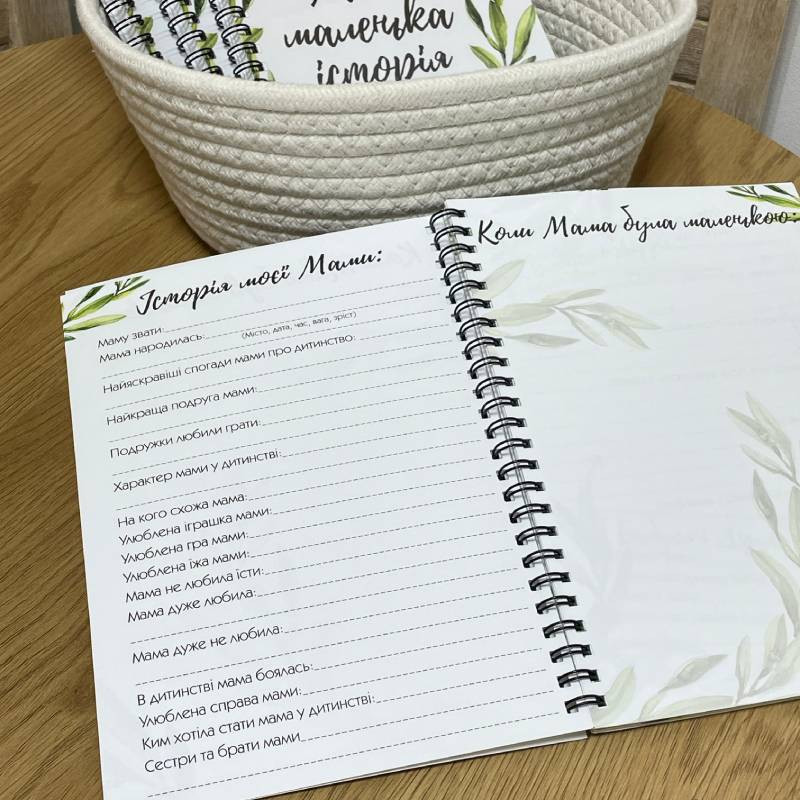 маленька
історія
Історія моєї Мами:
Маму звати:
Мама народилась:
(Місто, дата, час, вага, зріст)
Найяскравіші спогади мами про дитинство:
Найкраща подруга мами:
Подружки любили грати:
Характер мами у дитинстві:
На кого схожа мама:
Улюблена іграшка мами:
Улюблена гра мами:
Улюблена їжа мами:
Мама не любила їсти:
Мама дуже любила:
Мама дуже не любила:
В дитинстві мама боялась:
Улюблена справа мами:
Ким хотіла стати мама у дитинстві:
Сестри та брати мами
Коли Мама була маленькою: